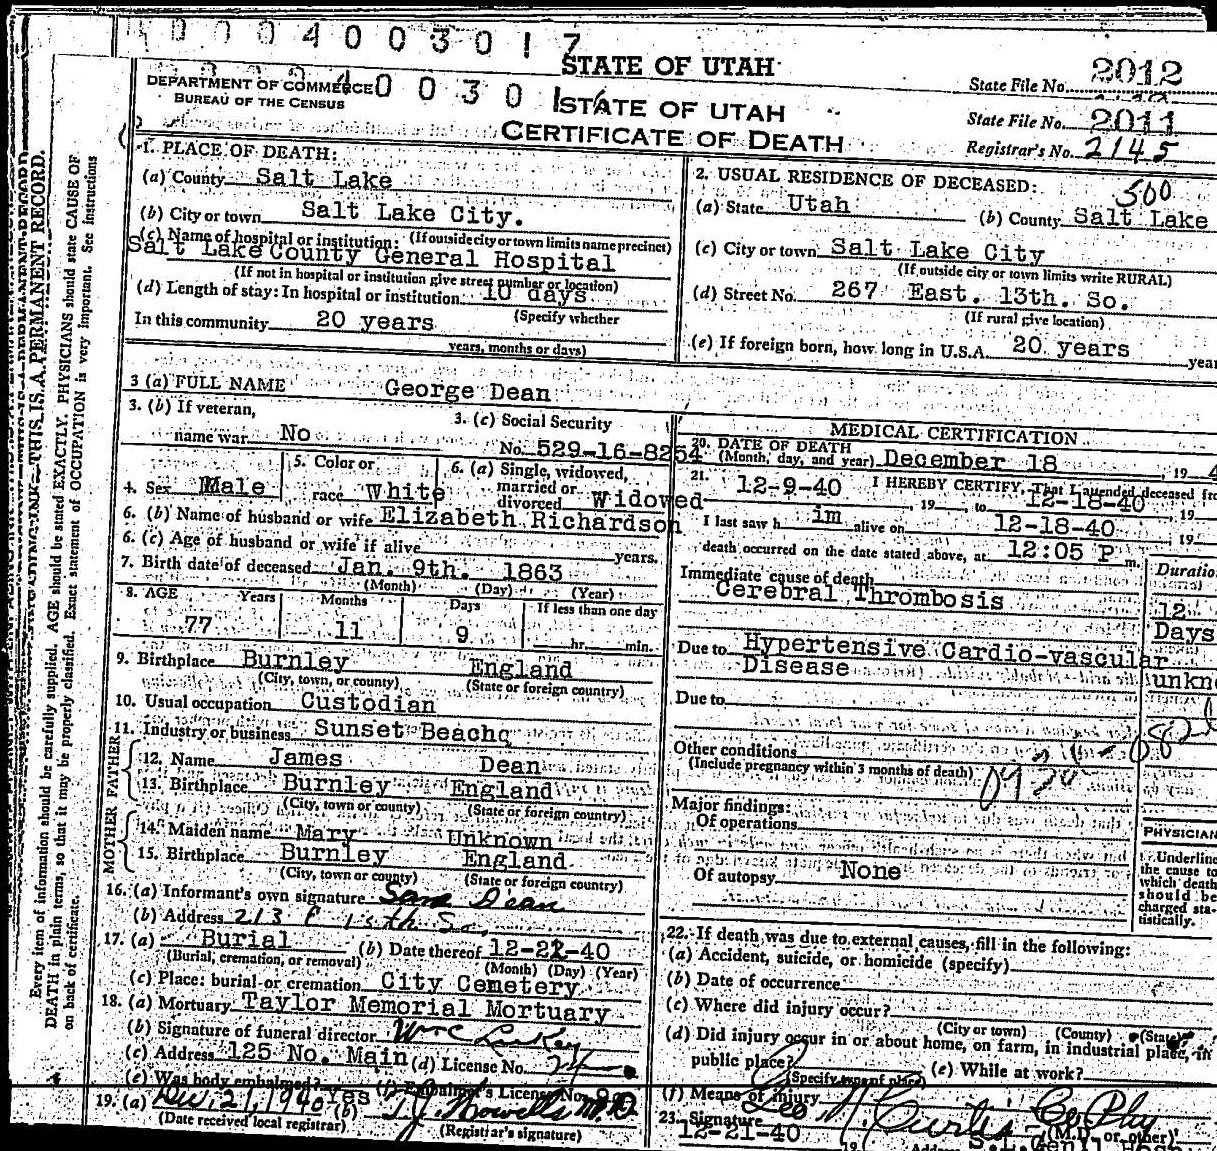 0004003017
STATE OF UTAH
State File No. 2012
DEPARTMENT OF COMMERCE
BUREAU OF THE CENSUS
STATE OF UTAH
CERTIFICATE OF DEATH
State File No. 2011
Registrar's No. 2145
1. PLACE OF DEATH:
(a) County Salt Lake
(b) City or town Salt Lake City.
(c) Name of hospital or institution: (If outside city or town limits name precinct)
Salt Lake County General Hospital
(If not in hospital or institution give street number or location)
(d) Length of stay: In hospital or institution 10 days
(Specify whether
In this community 20 years
years, months or days)
2. USUAL RESIDENCE OF DECEASED: 500
(a) State Utah (b) County Salt Lake
(c) City or town Salt Lake City
(If outside city or town limits write RURAL)
(d) Street No. 267 East. 13th. So.
(If rural give location)
(e) If foreign born, how long in U.S.A. 20 years year
3 (a) FULL NAME George Dean
3. (b) If veteran,
name war No
3. (c) Social Security
No. 529-16-8254
4. Sex Male
5. Color or
race White
6. (a) Single, widowed,
married or
divorced Widowed
6. (b) Name of husband or wife Elizabeth Richardson
6. (c) Age of husband or wife if alive years.
7. Birth date of deceased Jan. 9th. 1863
(Month) (Day) (Year)
8. AGE Years Months Days If less than one day
77 11 9 hr. min.
9. Birthplace Burnley England
(City, town, or county) (State or foreign country)
10. Usual occupation Custodian
11. Industry or business Sunset Beach
FATHER
12. Name James Dean
13. Birthplace Burnley England
(City, town or county) (State or foreign country)
MOTHER
14. Maiden name Mary Unknown
15. Birthplace Burnley England
(City, town or county) (State or foreign country)
16. (a) Informant's own signature Dean
(b) Address 213 13th So.
17. (a) Burial (b) Date thereof 12-22-40
(Burial, cremation, or removal) (Month) (Day) (Year)
(c) Place: burial or cremation City Cemetery
18. (a) Mortuary Taylor Memorial Mortuary
(b) Signature of funeral director
(c) Address 125 No. Main (d) License No.
(e) Was body embalmed? Yes (f) Embalmer's License No.
19. (a) Dec. 21, 1940 (b) T.J. Howells M.D.
(Date received local registrar) (Registrar's signature)
MEDICAL CERTIFICATION
20. DATE OF DEATH
(Month, day, and year) December 18, 19 4
21. I HEREBY CERTIFY, That I attended deceased fro
12-9-40, 19 , to 12-18-40, 19
I last saw h im alive on 12-18-40, 19
death occurred on the date stated above, at 12:05 P m.
Duratio
Immediate cause of death
Cerebral Thrombosis 12
Days
Due to Hypertensive Cardio-vascular
Disease unkn
Due to
Other conditions
(Include pregnancy within 3 months of death)
Major findings:
Of operations
Of autopsy None
PHYSICIAN
Underline
the cause to
which death
should be
charged sta-
tistically.
22. If death was due to external causes, fill in the following:
(a) Accident, suicide, or homicide (specify)
(b) Date of occurrence
(c) Where did injury occur?
(City or town) (County) (State)
(d) Did injury occur in or about home, on farm, in industrial place, in
public place?
(Specify type of place) (e) While at work?
(f) Means of injury
23. Signature Leo N. Curtis Co Phy
(M.D. or other)
12-21-40 19 Address S.L. Gen'l Hosp
THIS IS A PERMANENT RECORD.
Every item of information should be carefully supplied. AGE should be stated EXACTLY. PHYSICIANS should state CAUSE OF
DEATH in plain terms, so that it may be properly classified. Exact statement of OCCUPATION is very important. See Instructions
on back of certificate.